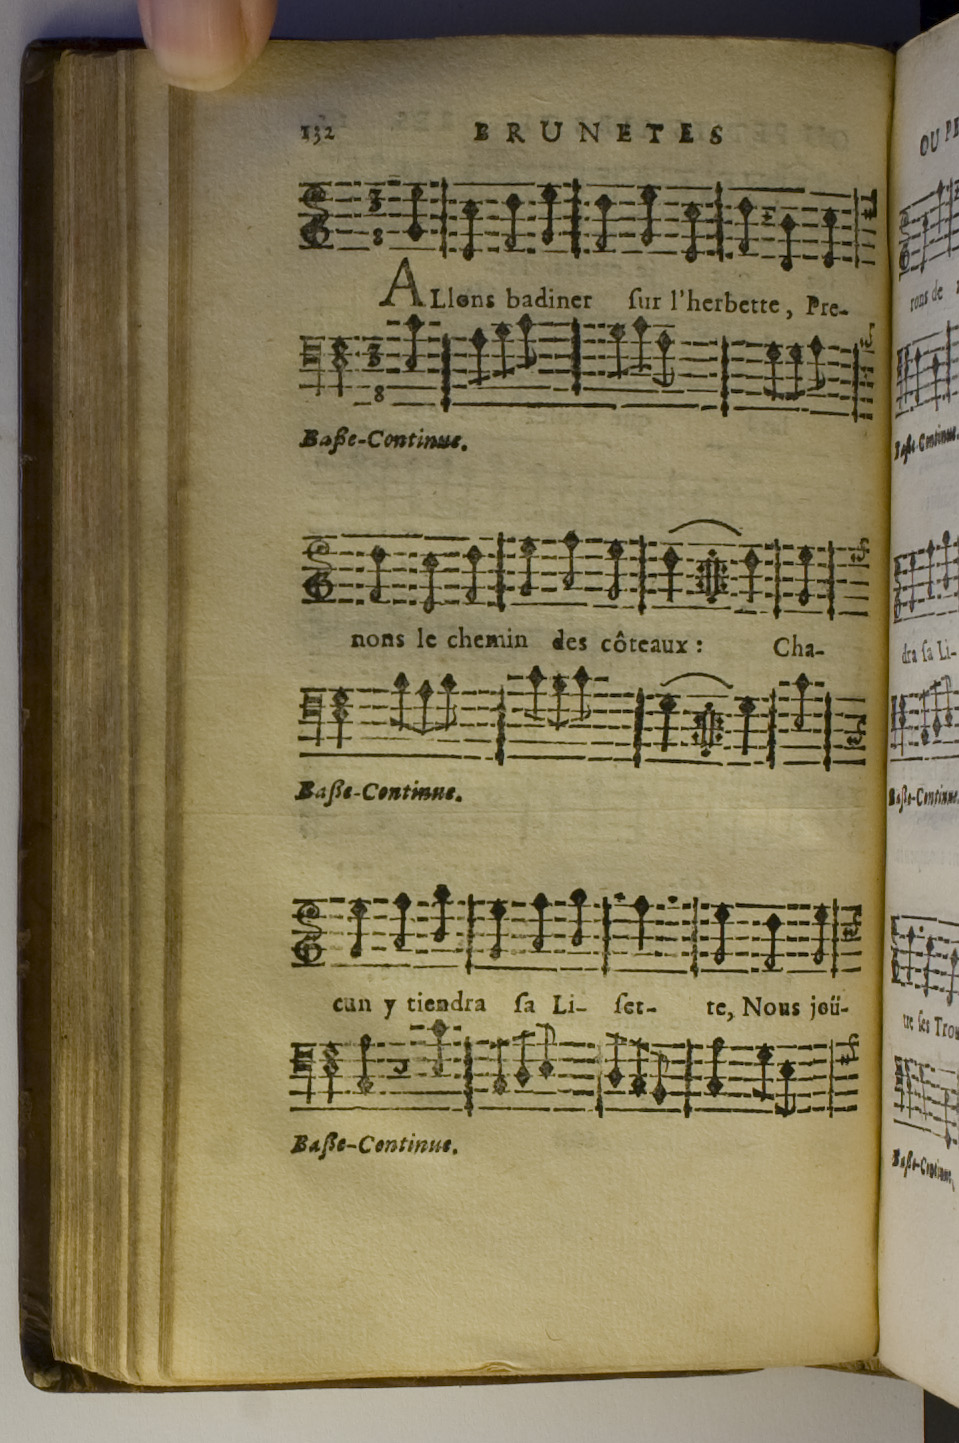 132 BRUNETES
3
8
ALlons badiner ſur l'herbette, Pre-
3
8
Baſſe-Continue.
nons le chemin des côteaux : Cha-
Baſſe-Continue.
cun y tiendra ſa Li- ſet- te, Nous joü-
Baſſe-Continue.
OU PE
rons de
Baſſe-Continue.
dra ſa Li-
Baſſe-Continue.
tre ſes Trou
Baſſe-Continue.